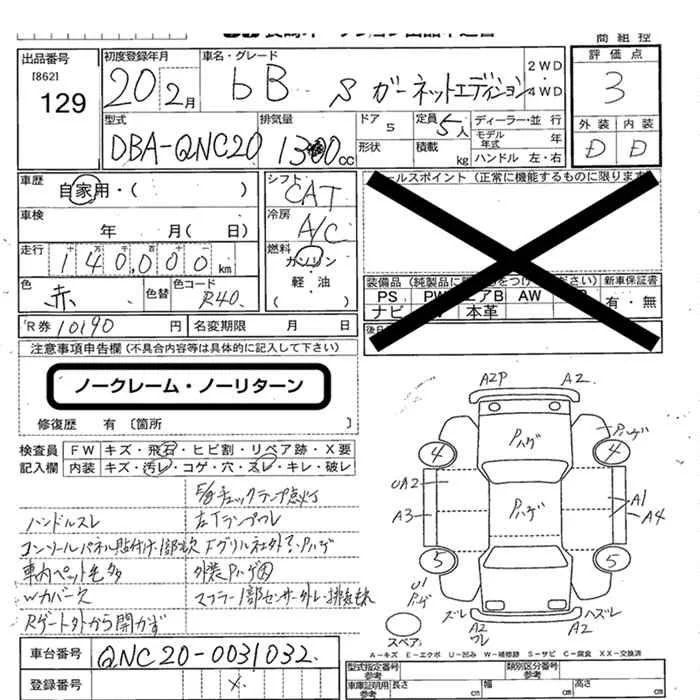 商組控
出品番号
[862]
129
初度登録年月
20年2月
車名・グレード
bB S ガーネットエディション
2WD
4WD
評価点
3
外装 内装
D D
型式
DBA-QNC20
排気量
1300cc
ドア
5
定員 5人
形状
積載 kg
ディーラー・並行
モデル年式 年
ハンドル 左・右
車歴
自家用・( )
車検
年 月( 日)
走行
十 万 千 百 十
140,000km
色
赤
色替
色コード
R40
シフト
CAT
冷房
A/C
燃料
ガソリン
軽油
( )
セールスポイント (正常に機能するものに限ります
装備品 (純製品に
つけ
ださい) 新車保証書
PS PW エアB AW
ナビ 本革
有・無
R券 10190 円
名変期限 月 日
注意事項申告欄 (不具合内容等は具体的に記入して下さい)
ノークレーム・ノーリターン
修復歴 有 〔箇所 〕
検査員記入欄
FW キズ・飛石・ヒビ割・リペア跡・X要
内装 キズ・汚レ・コゲ・穴・スレ・キレ・破レ
チェックランプ点灯
ハンドルスレ
コンソールパネル貼付け・1部欠
車内ペット毛多
外装Pハゲ多
Wカバー欠
マフラー1部センサー外レ・排気
Rゲート外から開かず
A2P A2
Pハゲ
Pハゲ
4
4
UA2
A3
Pハゲ
A1
A4
5
5
U1
Pハゲ
ズレ
A2
ワレ
A2
ハズレ
スペア
A-キズ E-エクボ U-凹み W-補修跡 S-サビ C-腐食 XX-交換済
車台番号
QNC20-0031032
登録番号
型式指定番号
参考
類別区分番号
参考
車庫証明用
参考
長さ cm
幅 cm
高さ cm